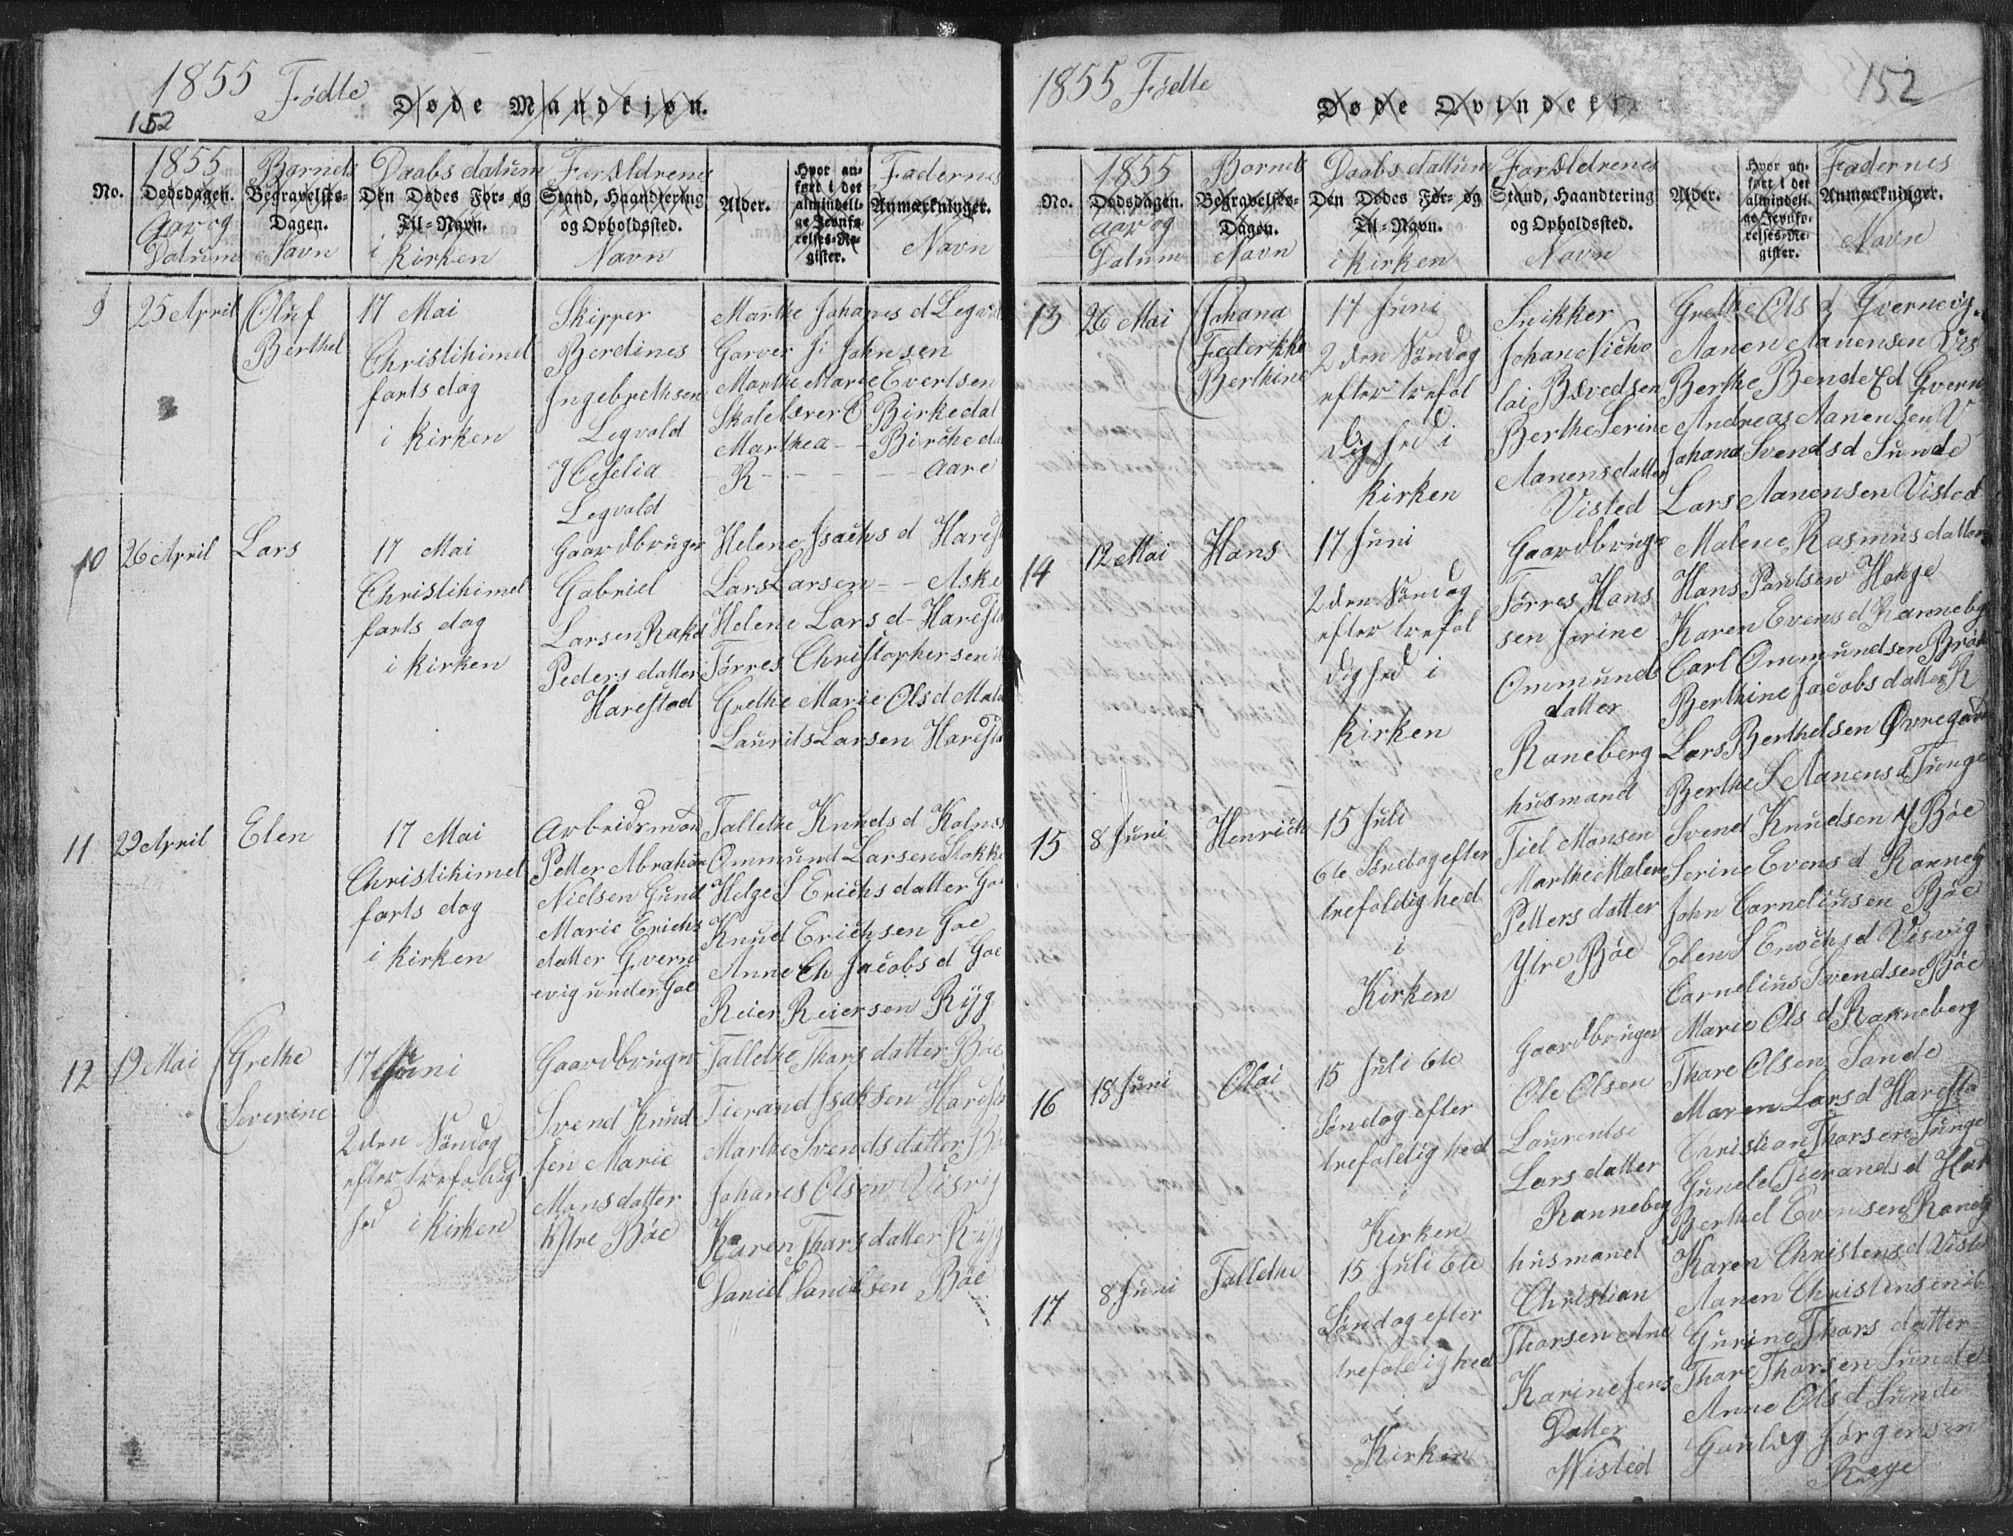 1855 Fødte
152
Døde Mandkiøn.
No.
1855
Dødsdagen.
Aar og
Datum
Barnets
Begravelses-
Dagen.
Navn
Daabs datum
Den Dødes For- og
Til-Navn.
i kirken
Forældrenes
Stand, Haandtering
og Opholdssted.
Navn
Alder.
Hvor an-
ført i det
almindeli-
ge Jevnfø-
relses-Re-
gister.
Fadernes
Anmærkninger.
Navn
9
25 April
Oluf
Berthel
17 Mai
Christihimel
farts dag
i kirken
Skipper
Berdines
Ingebrethsen
Legvold
Legvold
Marthe Johanes d
Garver Ji Johnsen
Marthe Marie Evertsen
Skolelærer C Birkedal
Marthea - - Birche
R - - - - Aare
10
26 April
Lars
17 Mai
Christihimel
farts dag
i kirken
Gaardbruger
Gabriel
Larsen
Peders datter
Harestad
Helene Isachs d
Lars Larsen - - Aske
Helene Lars d
Tørres Christophersen
Grethe Marie Ols d
Laurits Larsen
11
29 April
Elen
17 Mai
Christihimel
farts dag
i kirken
Arbeidsman
Petter
Nielsen Gund
Marie Erichs
datter
evig under Goe
Tallethe Knuds d
Ommund Larsen
Helge S Erichs datter
Knud Erichsen Goe
Anne Ch Jacobs d Goe
Reier Reiersen Ryg
12
19 Mai
Grethe
Severine
17 Juni
2den Søndag
efter trefoldig
hed i kirken
Gaardbruger
Svend Knud
sen Marie
Mons datter
Ytre Bøe
Tallethe Thors datter Bøe
Tierand Isaksen
Marthe Svends datter
Johanes Olsen
Karen Thors datter Ryg
Daniel Danielsen Bøe
1855 Fødte
152
Døde Qvindekiøn
No.
1855
Dødsdagen.
Aar og
Datum
Barnets
Begravelses-
Dagen.
Navn
Daabs dattum
Den Dødes For- og
Til-Navn.
i kirken
Forældrenes
Stand, Haandtering
og Opholdssted.
Navn
Alder.
Hvor an-
ført i det
almindeli-
ge Jevnfø-
relses-Re-
gister.
Fadernes
Anmærkninger.
Navn
13
26 Mai
Johana
Federikke
Berthine
17 Juni
2den Søndag
efter trefol
dighed i
kirken
Snikker
Johan Nicho
lai
Berthe Serine
Aanens datter
Visted
Grethe Ols d
Aanen Aanensen
Berthe
Andreas Aanensen V
Johana Svends d Sunde
Lars Aanensen Visted
14
12 Mai
Hans
17 Juni
2den Søndag
efter trefol
dighed i
kirken
Gaardbruger
Tørres Hans
sen Jorine
Ommunds
datter
Raneberg
Malene Rasmus datter
Hans Paulsen
Karen Evens d
Carl Ommundsen
Berthine Jacobs datter R
Lars Berthelsen
Berthe S Aanens d Tunge
15
8 Juni
Henrich
15 Juli
6te Søndag efter
trefoldighed
i
Kirken
husmand
Tiel Monsen
Marthe Malene
Petters datter
Ytre Bøe
Svend Knudsen Y Bøe
Serine Evens d
John Cornelinsen Bøe
Elen S Enochs d
Cornelius Svendsen Bøe
Marie Ols d Ranneberg
16
18 Juni
Olai
15 Juli 6te
Søndag efter
trefoldighed
i
Kirken
Gaardbruger
Ole Olsen
Laurentse
Lars datter
Ranneberg
Thore Olsen Sande
Maren Lars d
Christian Thorsen Tunge
Gundel Tierands d
Berthel Evensen
17
8 Juni
Tallethe
15 Juli 6te
Søndag efter
trefoldighed
i
Kirken
husmand
Christian
Thorsen Ane
Karine Jens
Datter
Wisted
Karen Christens d
Aanen Christensen
Gurine Thors datter
Thore Thorsen Sunde
Anne Ols d Sunde
Jørgensen
Rege